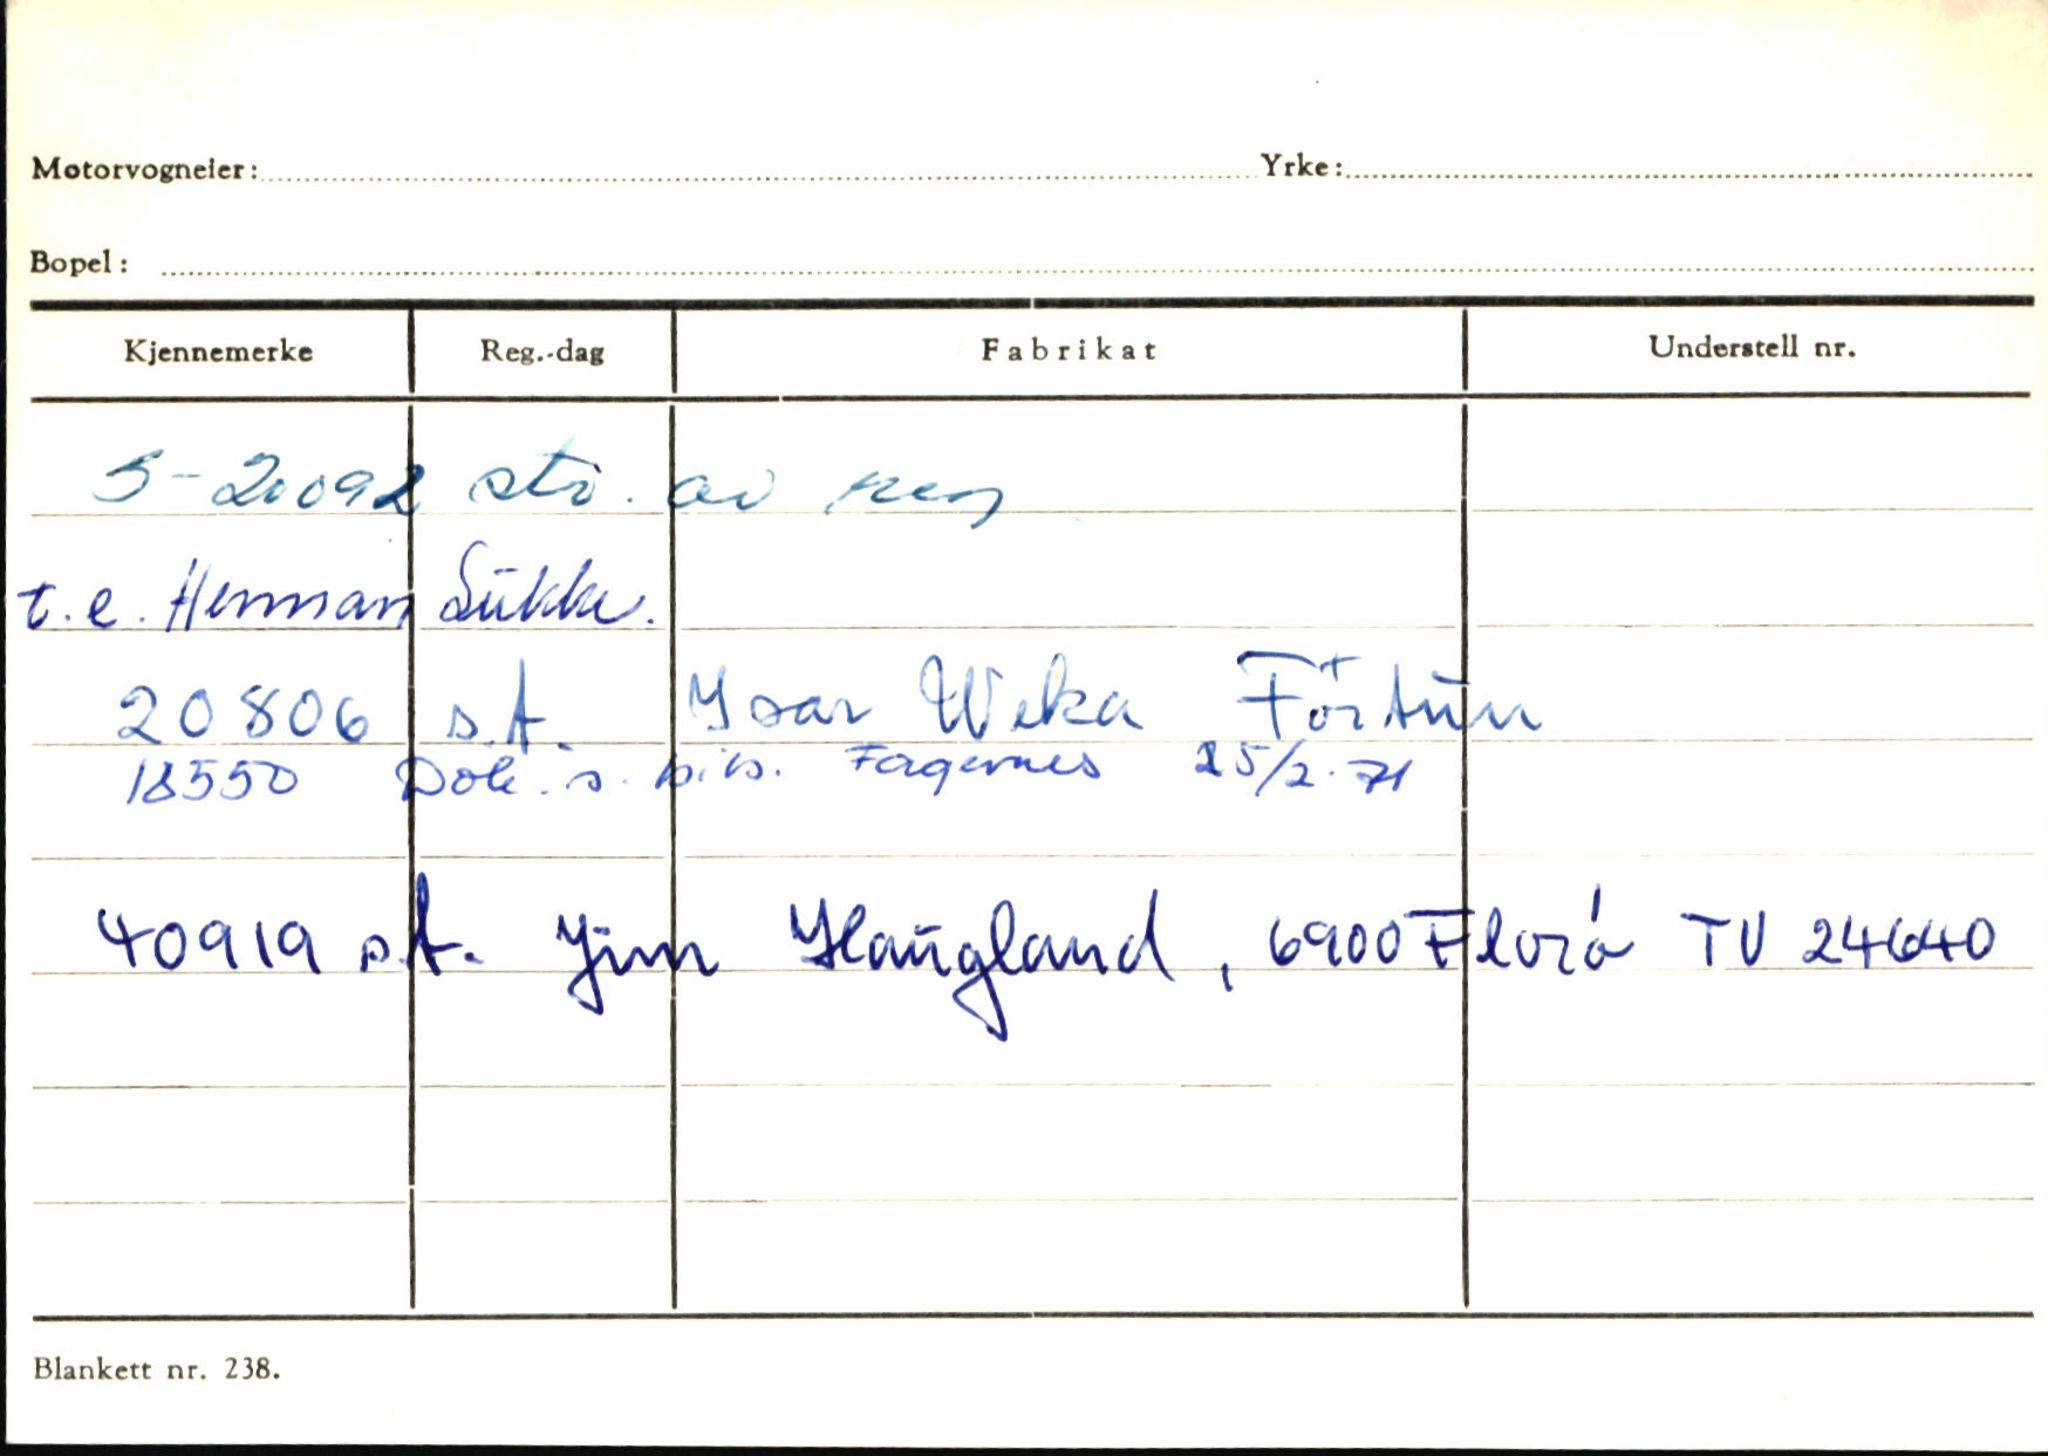 Motorvogneier: Yrke:
Bopel:
Kjennemerke Reg.-dag Fabrikat Understell nr.
S-20092 str. av reg
t.e. Herman Lükke.
20806 s.A. Ivar Weka Fortun
18550 Dok. s. bils. Fagernes 25/2.71
40919 s.A. Jim Haugland, 6900 Florø TV 24640
Blankett nr. 238.